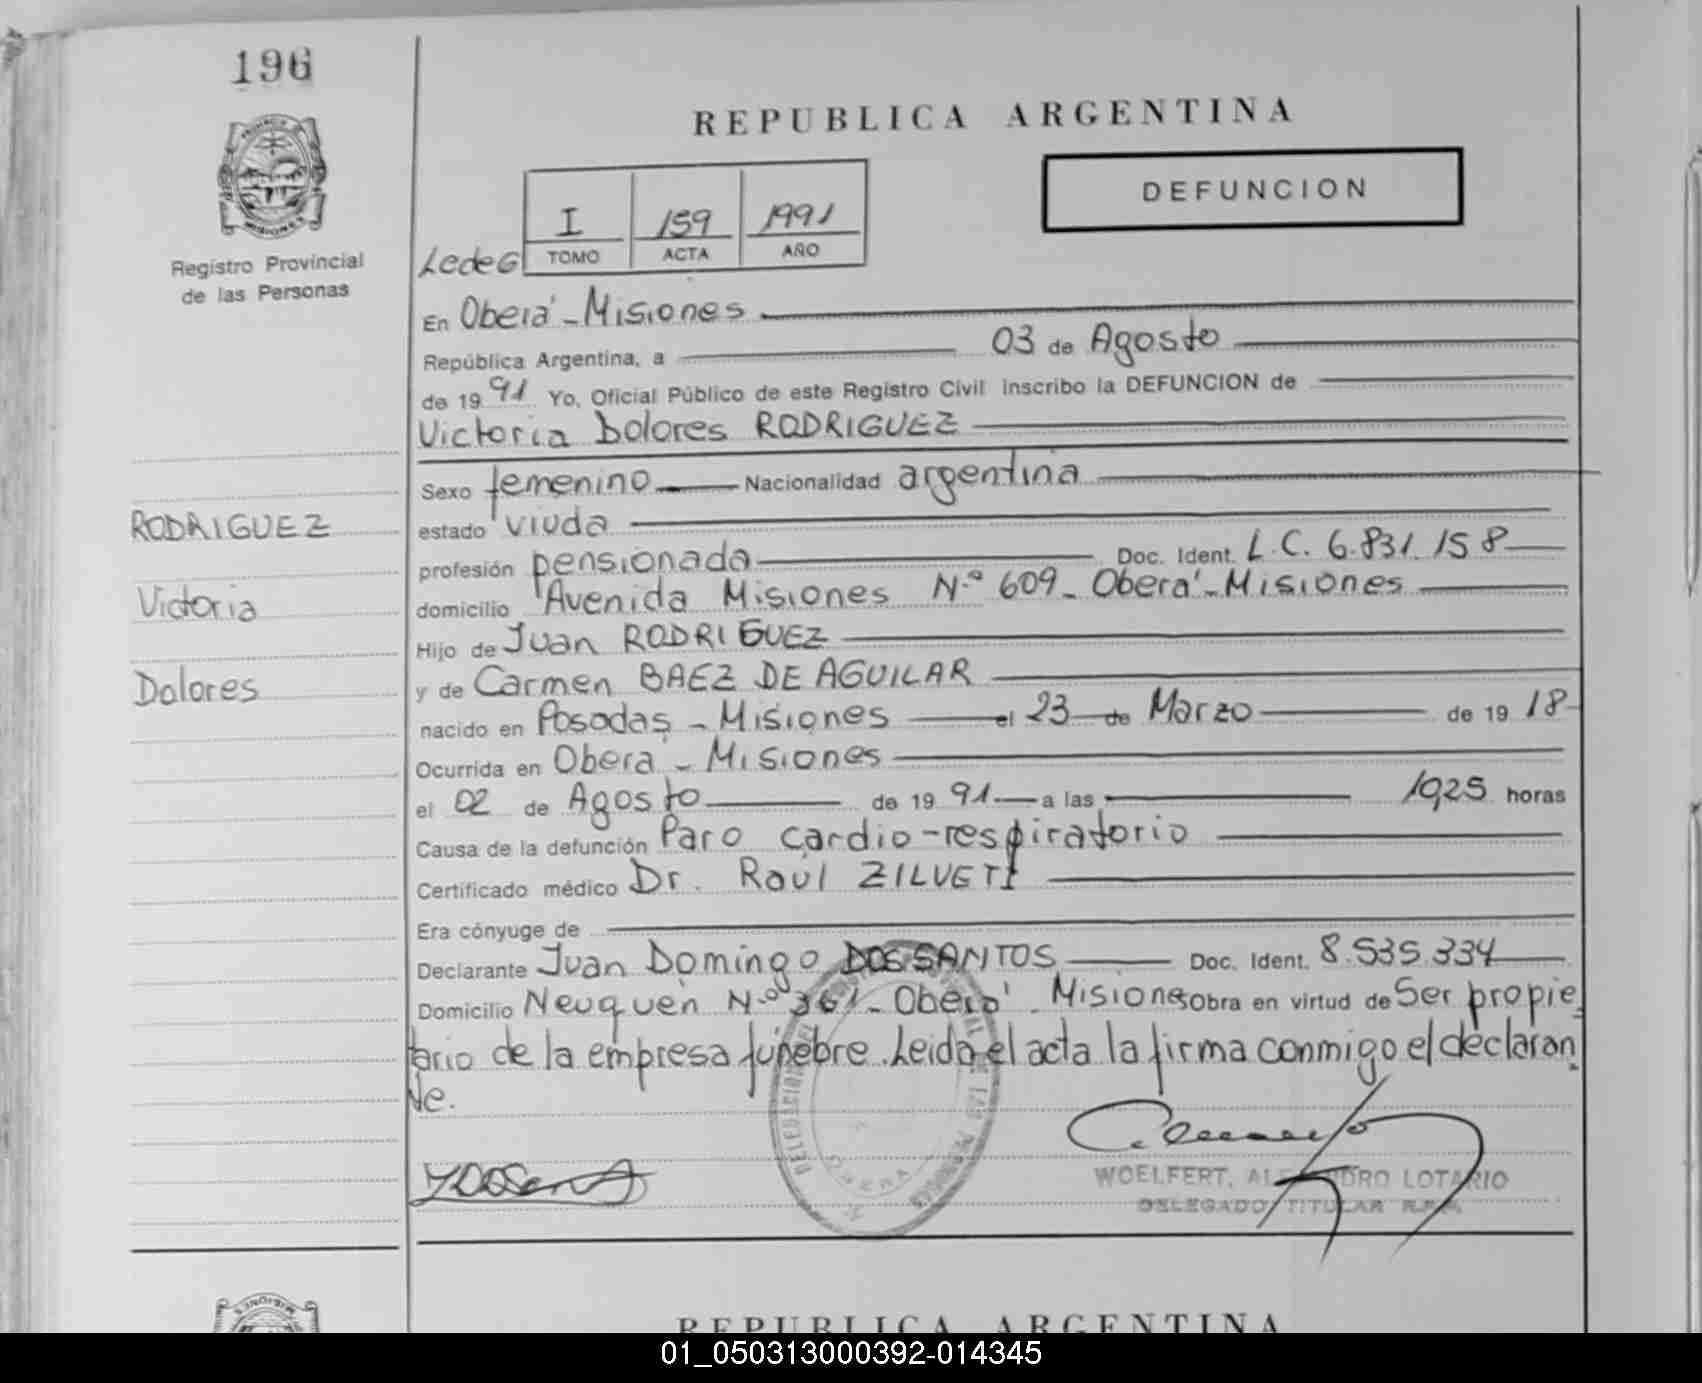 196
REPUBLICA ARGENTINA
DEFUNCION
I 159 1991
TOMO ACTA AÑO
LedeG
PROVINCIA DE
MISIONES
Registro Provincial
de las Personas
En Oberá - Misiones
República Argentina, a 03 de Agosto
de 19 91 Yo, Oficial Público de este Registro Civil inscribo la DEFUNCION de
Victoria Dolores RODRIGUEZ
Sexo femenino Nacionalidad argentina
estado viuda
profesión pensionada Doc. Ident. L.C. 6.831.158
domicilio Avenida Misiones N.º 609 - Oberá - Misiones
Hijo de Juan RODRIGUEZ
y de Carmen BAEZ DE AGUILAR
nacido en Posadas - Misiones el 23 de Marzo de 19 18
Ocurrida en Oberá - Misiones
el 02 de Agosto de 19 91 a las 1925 horas
Causa de la defunción Paro cardio-respiratorio
Certificado médico Dr. Raúl ZILVETI
Era cónyuge de
Declarante Juan Domingo DOS SANTOS Doc. Ident. 8.535.334
Domicilio Neuquén N.º 361 - Oberá - Misiones Obra en virtud de Ser propie
tario de la empresa fúnebre. Leida el acta la firma conmigo el declaran
te.
RODRIGUEZ
Victoria
Dolores
DELEGACION DEL
DE LAS PERSONAS
OBERA
WOELFERT, ALEJANDRO LOTARIO
DELEGADO TITULAR R.P.P.
MISIONES
REPUBLICA ARGENTINA
01_050313000392-014345